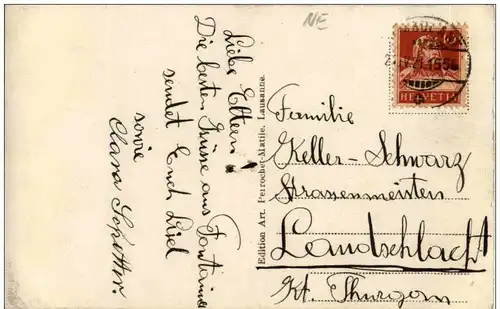 NE
Liebe Eltern!
Die besten Grüsse aus
sendet Euch Lisel
sowie
Clara
Edition Art. Perrochet-Matile, Lausanne.
HELVETIA
Familie
Keller-Schwarz
Strassenmeisters
Landschlacht
Kt. Thurgau